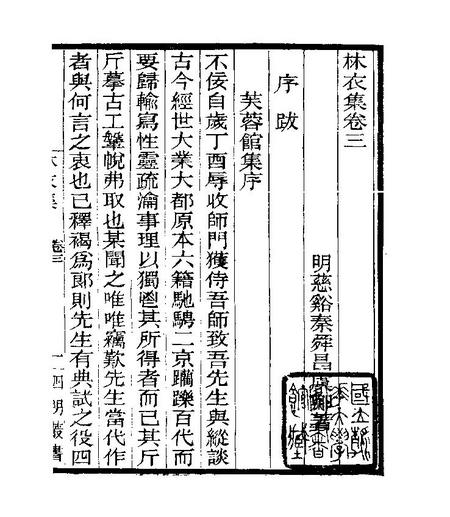 林衣集卷三
明慈谿秦舜昌
序跋
芙蓉館集序
不佞自歲丁酉辱收師門獲侍吾師致吾先生與縱談
古今經世大業大都原本六籍馳騁二京躪躒百代而
要歸輸寫性靈疏瀹事理以獨鬯其所得者而已其斤
斤摹古工鞶帨弗取也某聞之唯唯竊歎先生當代作
者與何言之衷也已釋褐爲郞則先生有典試之役四
林衣集 卷三 一 四明叢書